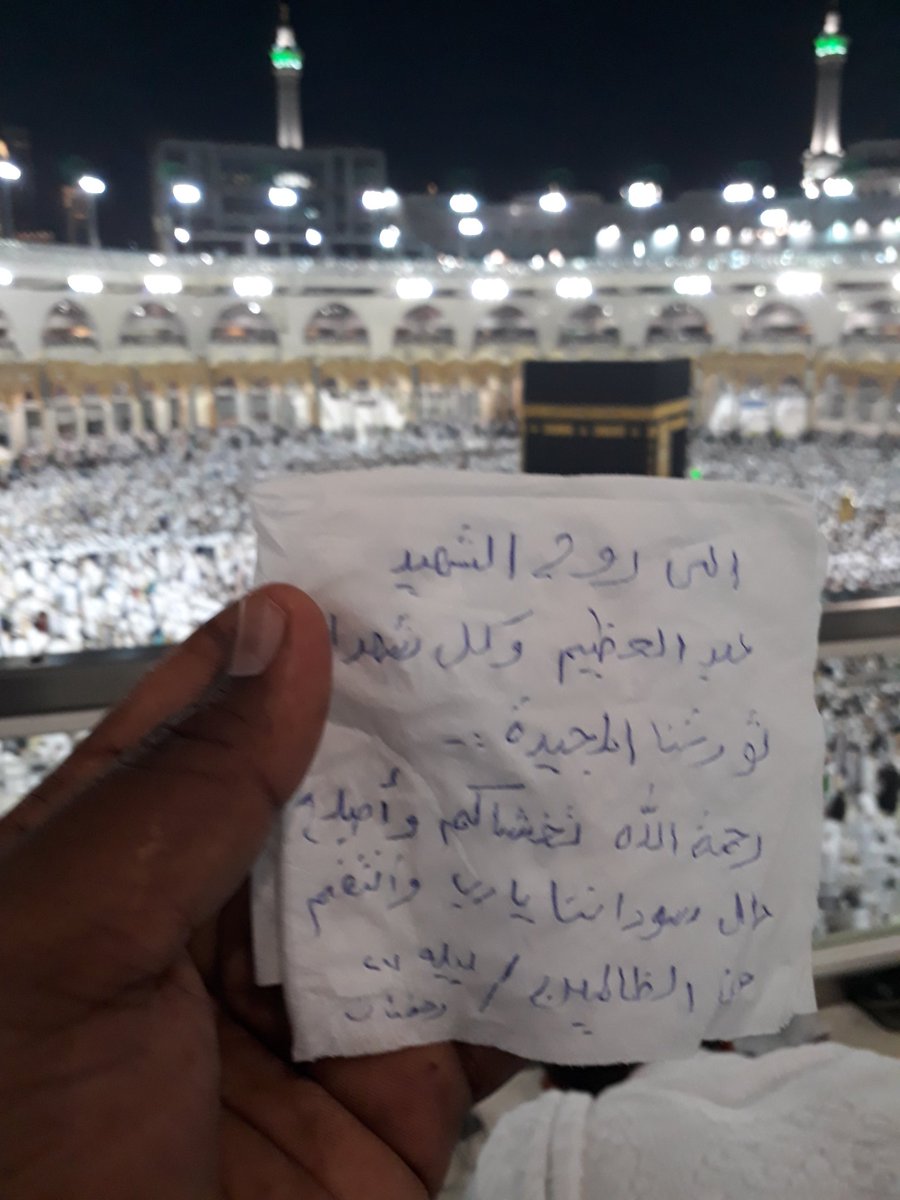 الى روح الشهيد
عبد العظيم وكل شهدا
ثورتنا المجيدة :-
رحمة الله تغشاكم وأصلح
حال سوداننا يارب وأنتقم
من الظالمين / ليله
رمضان